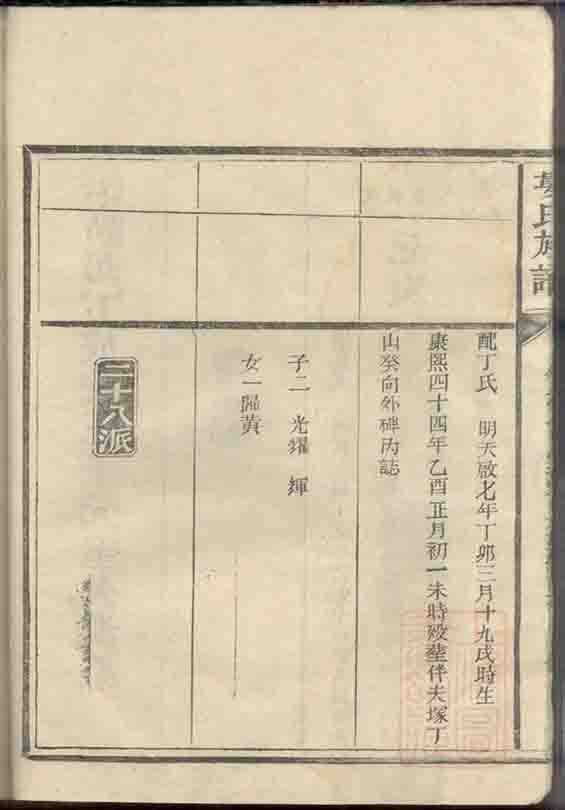 氏族譜
配丁氏 明天啟七年丁卯三月十九戌時生
康熙四十四年乙酉正月初一未時歿塟伴夫塚丁
山癸向外碑內誌
子二 光燿 煇
女一歸黃
二十八派